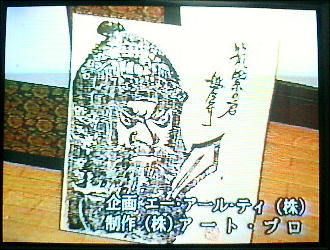 企画 エー・アール・ティ（株）
制作（株）アート・プロ